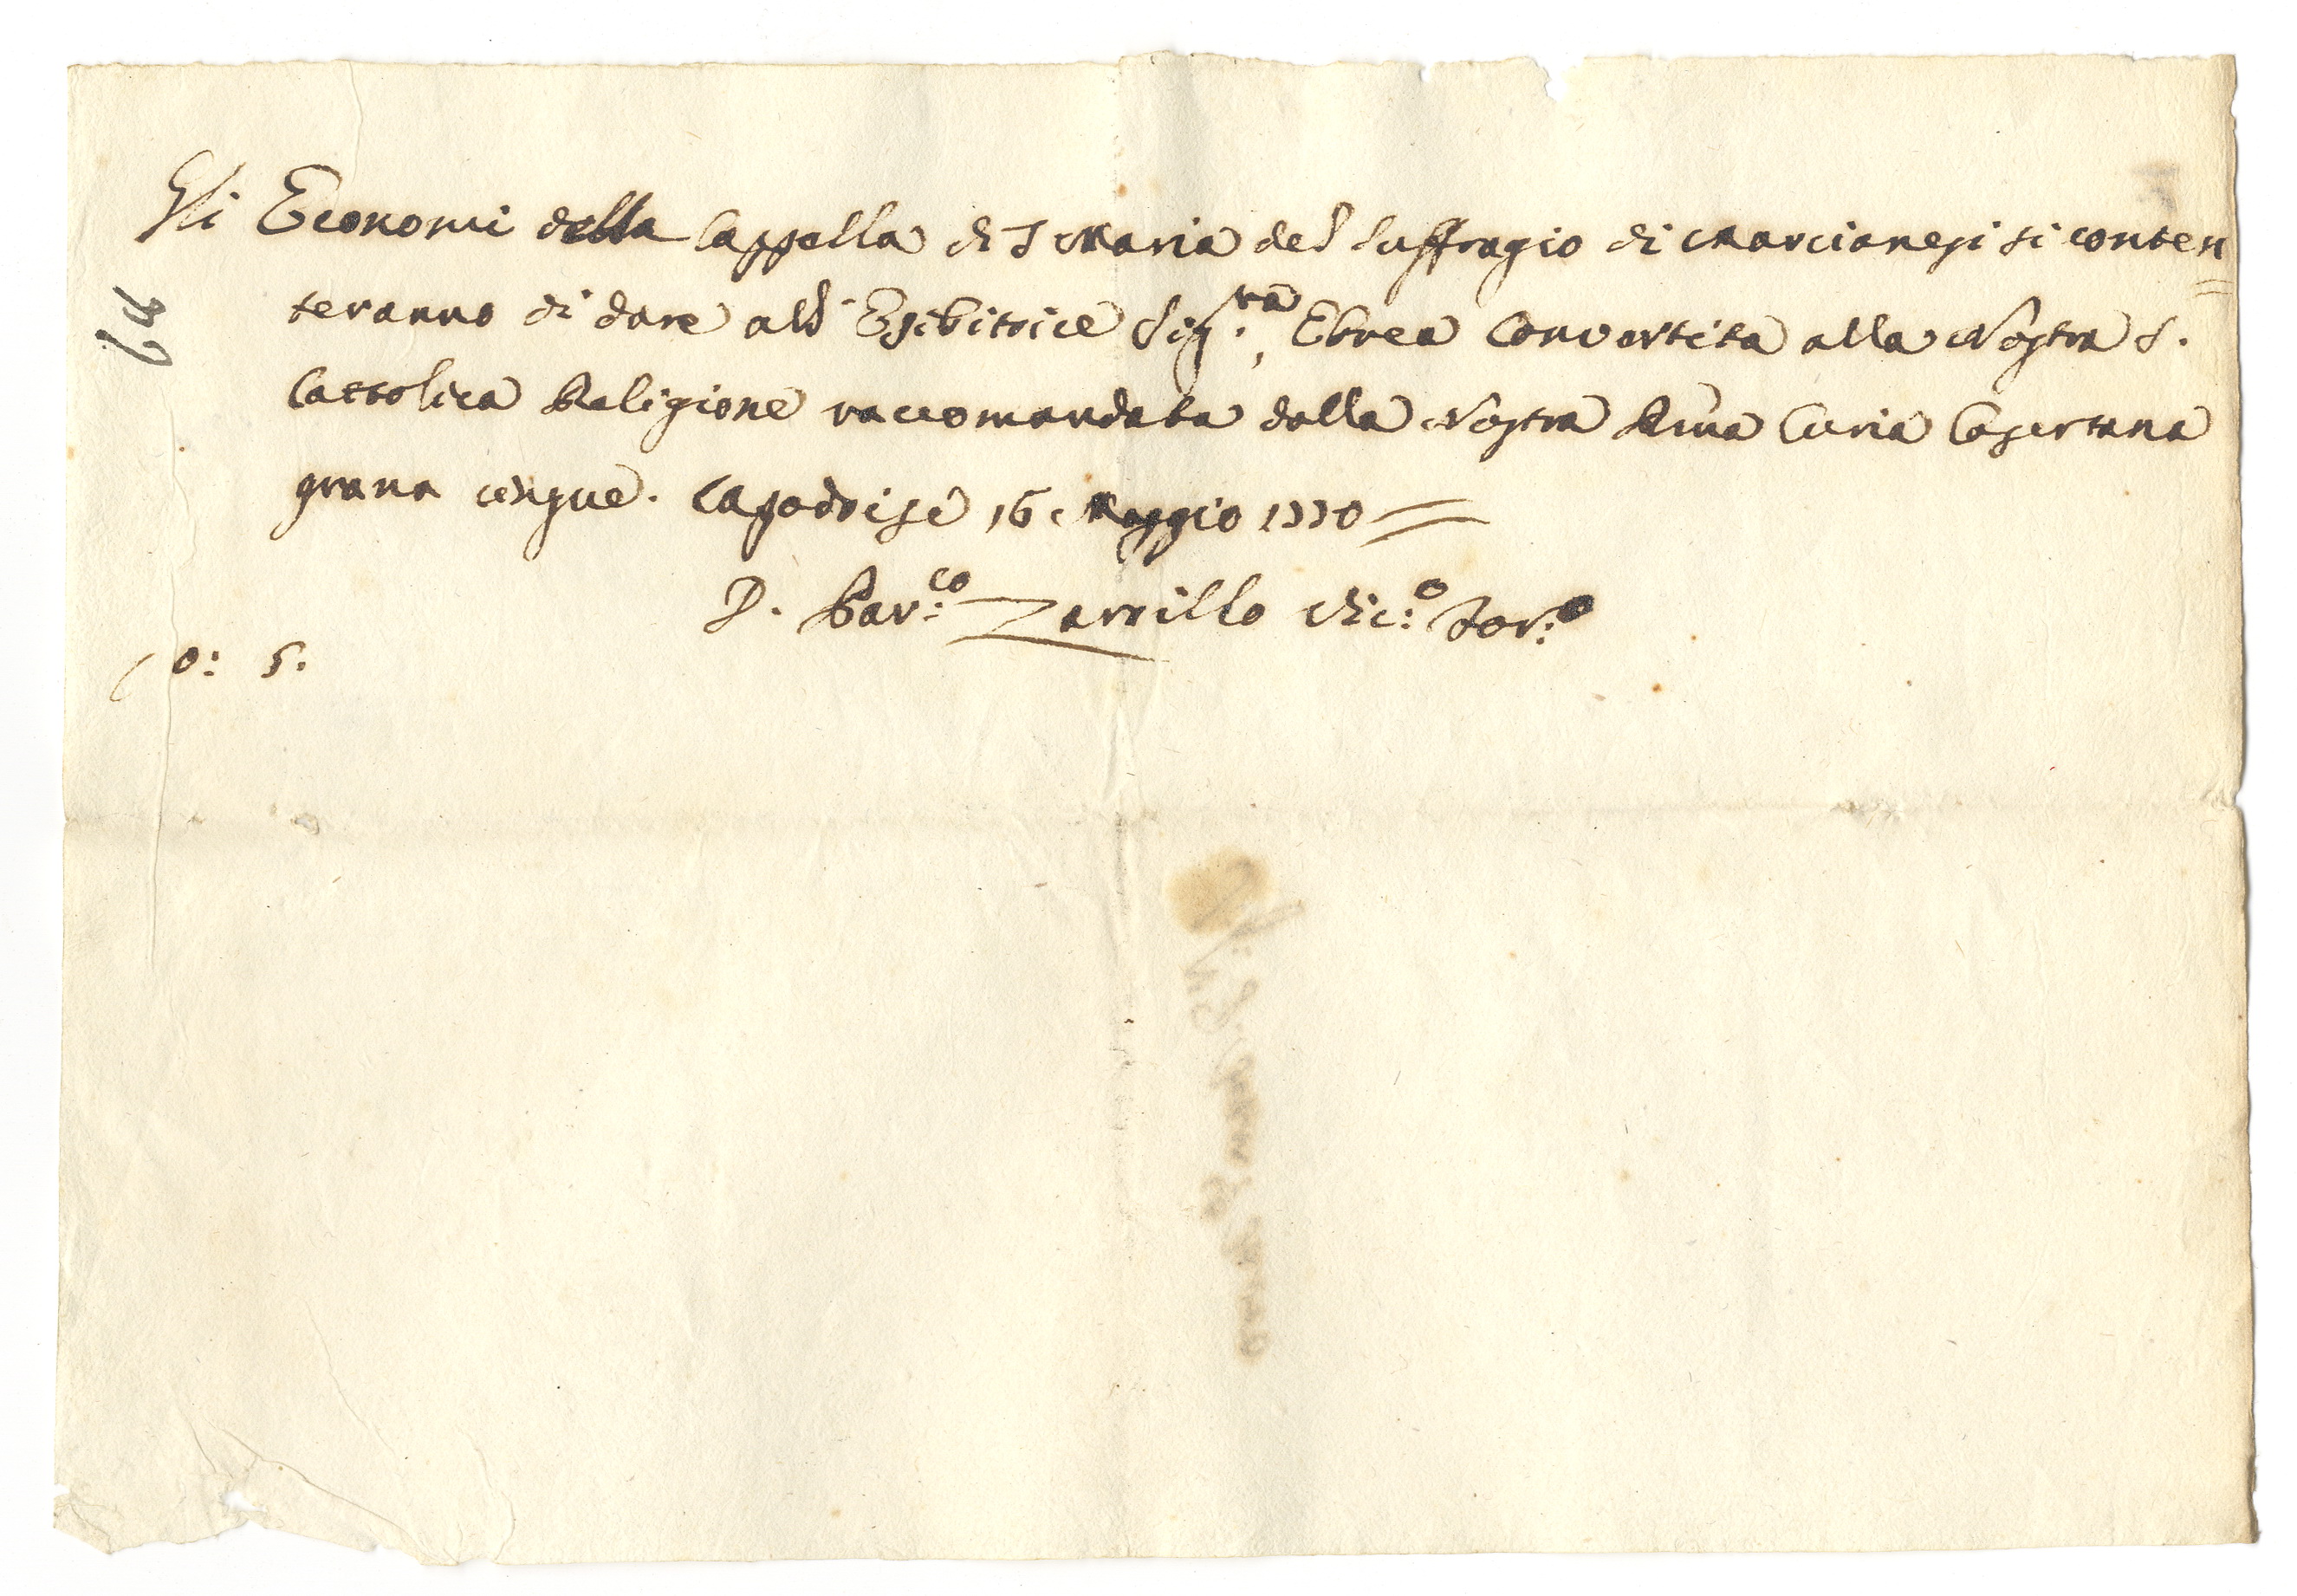 Gli Economi della Cappella di S Maria del Suffragio di Marcianesi si conten=
teranno di dare all' Esibitrice Sig.ra, Ebrea Convertita alla Nostra S.
Cattolica Religione raccomandata dalla Nostra Rma Curia Casertana
grana cinque. Capodrise 16. Maggio 1770=
D. Zarrillo Vic:o For:o
0: 5.